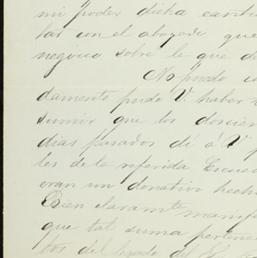 mi poder dicha canti
tar con el abogado que
negocio sobre le que de
No pudo co
damento pudo V. haber
sumir que los doscien
dias pasados di á V. p
les de la referida Escue
eran un donativo hecho
Bien claramte manifes
que tal suma pertene
tos del legado del